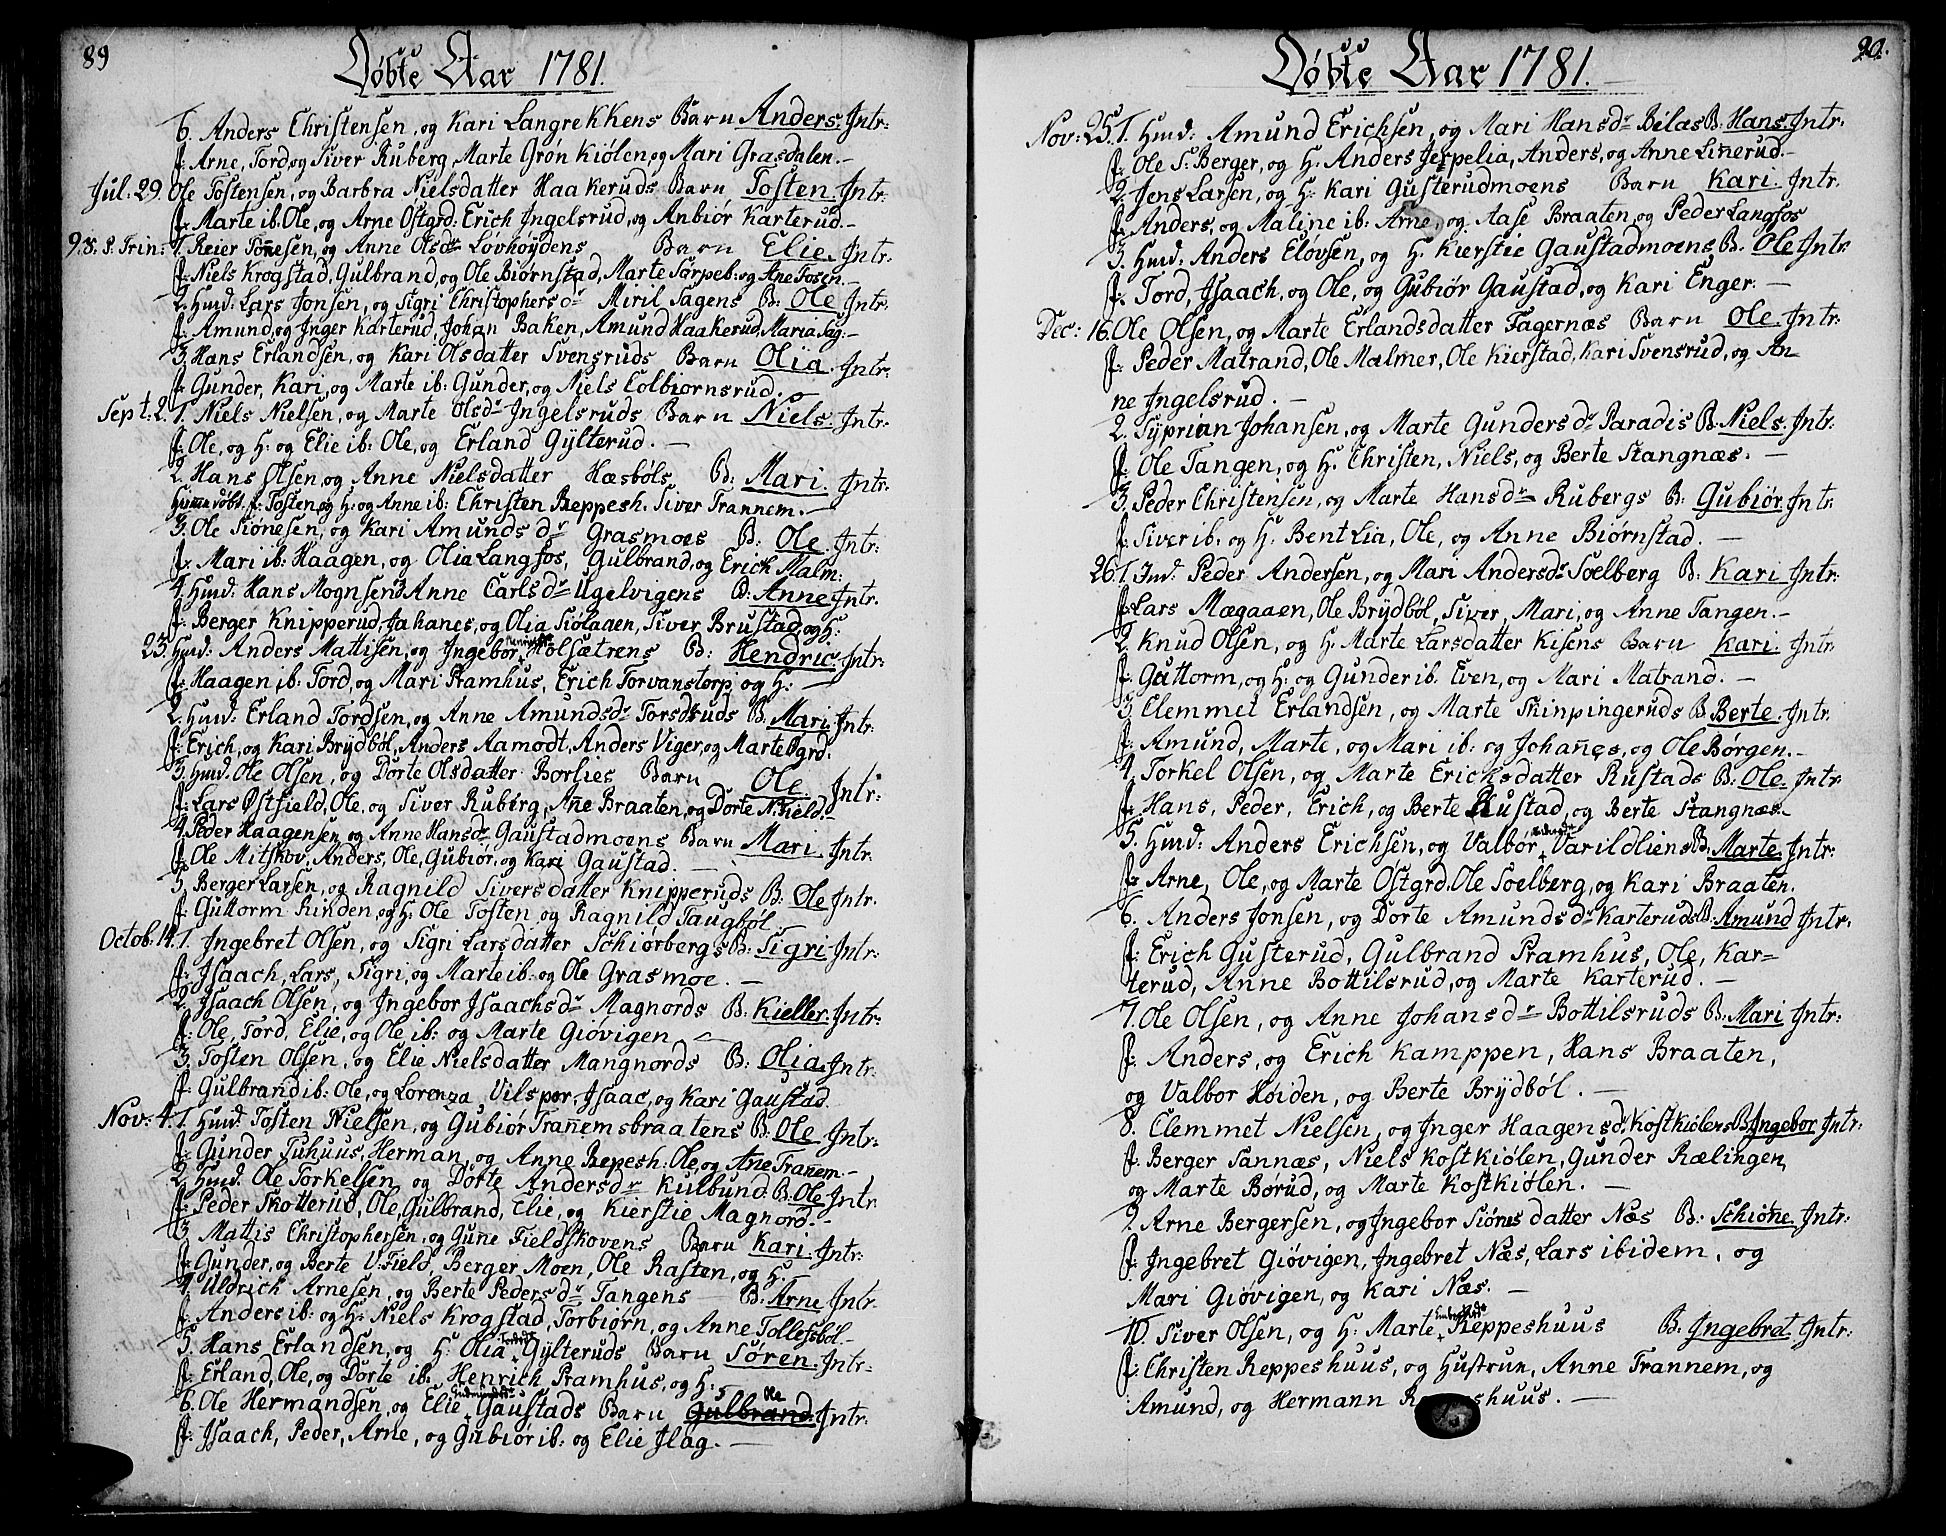 89
Døbte Aar 1781.
6. Anders Christensen, og Kari Langrekkens Barn Anders. Intr:
f: Arne, Tord, og Siver Ruberg, Marte Grønkiølen, og Mari Grasdalen.
Jul. 29. Ole Tostensen, og Barbra Nielsdatter Haakeruds Barn Tosten. Intr.
f: Marte ib: Ole, og Arne Østgrd: Erich Ingelsrud, og Anbiør Karterud.
9. S. P. Trin: 1. Reier Tonnesen, og Anne Olsdr Løvhøydens Barn Elie. Intr.
f: Niels Krogstad, Gulbrand, og Ole Biørnstad, Marte Sørpeb: og Ane Fosen.
2. Huud: Lars Jonsen, og Sigri Christophersdr Miril Sagens B: Ole Intr:
f: Amund, og Inger Karterud, Johan Baken, Amund Haakerud, Maria Sag:
3. Hans Erlandsen, og Kari Olsdatter Svensruds Barn Olia. Intr:
f: Gunder, Kari, og Marte ib: Gunder, og Niels Colbiornsrud.
Sept: 2. 1. Niels Nielsen, og Marte Olsdr Ingelsruds Barn Niels. Intr.
f: Ole, og H: og Elie ib: Ole, og Erland Gylterud.
2. Hans Olsen, og Anne Nielsdatter Hæsbøls B: Mari. Intr.
Hiemmedøbt. f: Tosten, og H: og Anne ib: Christen Reppesh. Siver Trannem.
3. Ole Siønesen, og Kari Amundsdr Grasmoes B: Ole. Intr:
f: Mari ib: Haagen, og Olia Langfos, Gulbrand, og Erick Malm:
4. Huud: Hans Mognsen, Anne Carlsdr Ugelvigens B: Anne Intr.
f: Berger Knipperud, Johanes, og Olia Siølaaen, Siver Brustad, og H:
23. Huud: Anders Mattisen, og Ingebor Holsætrens B: Hendric. Intr:
f: Haagen ib: Tord, og Mari Pramhus, Erich Torvanstorp, og H:
2. Huud: Erland Tordsen, og Anne Amundsdr Torsdruds B. Mari. Intr:
f: Erich, og Kari Brydbøl, Anders Aamodt, Anders Viger, og Marte Øgrd.
3. Huud. Ole Olsen, og Dorte Olsdatter Borlies Barn Ole. Intr:
f: Lars Østfield, Ole, og Siver Ruberg, Ane Braaten, og Dorte N. Field.
4. Peder Haagensen, og Anne Hansdr Gaustadmoens Barn Mari. Intr.
f: Ole Mitskov, Anders, Ole, Gubiør, og Kari Gaustad.
5. Berger Larsen, og Ragnild Siversdatter Knipperuds B: Ole Intr.
f: Guttorm Rinden, og H: Ole Tosten og Ragnild Taugbøl.
Octob: 14. 1. Ingebret Olsen, og Sigri Larsdatter Schiørbergs B: Sigri Intr:
f: Isaach, Lars, Sigri, og Marte ib: og Ole Grasmoe.
2. Isaach Olsen, og Ingebor Isaachsdr Magnords B: Kieller. Intr:
f: Ole, Tord, Elie, og Ole ib: og Marte Giøvigen
3. Tosten Olsen, og Elie Nielsdatter Mangnords B: Olia. Intr:
f: Gulbrand ib: Ole, og Lorenza Vilsper, Isaac, og Kari Gaustad.
Nov: 4. 1. Huud. Tosten Nielsen, og Gubiør Tranemsbraatens B: Ole Intr:
f: Gunder Tuhuus, Herman, og Anne Repesh: Ole, og Ane Tranem.
2. Huud. Ole Torkelsen, og Dorte Andersdr Kulbund. B: Ole Intr
f: Peder Skotterud, Ole, Gulbrand, Elie, og Kierstie Magnord.
3. Mattis Christophersen, og Gune Fieldskovens Barn Kari. Intr:
f: Gunder, og Berte V. Field, Berger Moen, Ole Rasten, og H:
4. Uldrich Arnesen, og Berte Pedersdr Tangens B: Arne Intr.
f: Anders ib: og H: Niels Krogstad, Torbiørn, og Anne Tollefsbøl
5. Hans Erlandsen, og H: Olia Gylteruds Barn Søren. Intr:
f: Erland, Ole, og Dorte ib: Henrich Pramhus, og H:
6. Ole Hermandsen, og Elie Gudmundsdr Gaustads Barn Gulbrand. Ole Intr:
f: Isaach, Peder, Arne, og Gubiør ib: og Elie Flag.
90.
Døbte Aar 1781.
Nov: 25. 1. Huud: Amund Erichsen, og Mari Hansdr Bilas B: Hans. Intr.
f: Ole S: Berger, og H: Anders Jerpelia, Anders, og Anne Linnerud.
2. Jens Larsen, og H: Kari Gusterudmoens Barn Kari. Intr.
f: Anders, og Maline ib: Arne, og Aase Braaten, og Peder Langfos
3. Huud: Anders Elovsen, og H. Kierstie Gaustadmoens B: Ole Intr
f: Tord, Isaach, og Ole, og Gubiør Gaustad, og Kari Enger.
Dec: 16. Ole Olsen, og Marte Erlandsdatter Fagernæs Barn Ole. Intr:
f: Peder Matrand, Ole Malmer, Ole Kierstad, Kari Svensrud, og An
ne Ingelsrud.
2. Syprian Johansen, og Marte Gundersdr Paradis B: Niels. Intr.
f: Ole Tangen, og H. Christen, Niels, og Berte Stangnæs.
3. Peder Christensen, og Marte Hansdr Rubergs B: Gubiør. Intr:
f: Siver ib. og H: Bent Lia, Ole, og Anne Biørnstad.
26. 1. Huud: Peder Andersen, og Mari Andersdr Soelberg B: Kari Intr:
f: Lars Mægaaen, Ole Brydbøl, Siver, Mari, og Anne Tangen.
2. Knud Olsen, og H: Marte Larsdatter Kisens Barn Kari. Intr.
f: Guttorm, og H: og Gunder ib. Even, og Mari Matrand.
3. Clemmet Erlandsen, og Marte Skinpingeruds B. Berte. Intr.
f: Amund, Marte, og Mari ib: og Johañes, og Ole Børgen.
4. Torkel Olsen, og Marte Ericksdatter Rustads B: Ole. Intr
f: Hans, Peder, Erich, og Berte Rustad, og Berte Stangnæs.
5. Huud: Anders Erichsen, og Valbør Varildliens B. Marte. Intr:
f: Arne, Ole, og Marte Østgrd. Ole Soelberg, og Kari Braaten.
6. Anders Jonsen, og Dorte Amundsdr Karteruds B: Amund Intr.
f: Erich Gusterud, Gulbrand Pramhus, Ole, Kar=
terud, Anne Bottilsrud, og Marte Karterud.
7. Ole Olsen, og Anne Johansdr Bottilsruds B: Mari Intr:
f: Anders, og Erich Kamppen, Hans Braaten,
og Valbor Høiden, og Berte Brydbøl.
8. Clemmet Nielsen, og Inger Haagensdr Kostkiølens B. Ingebor Intr:
f: Berger Sannæs, Niels Kostkiølen, Gunder Rælingen,
og Marte Børud, og Marte Kostkiølen.
9. Arne Bergersen, og Ingebor Siønesdatter Næs B: Schiøne. Intr:
f: Ingebret Giøvigen, Ingebret Næs, Lars ibidem, og
Mari Giøvigen, og Kari Næs.
10. Siver Olsen, og H: Marte Reppeshuus B: Ingebret. Intr:
f: Christen Reppeshuus, og Hustrue, Anne Trannem, og
Amund, og Hermann Reppeshuus.